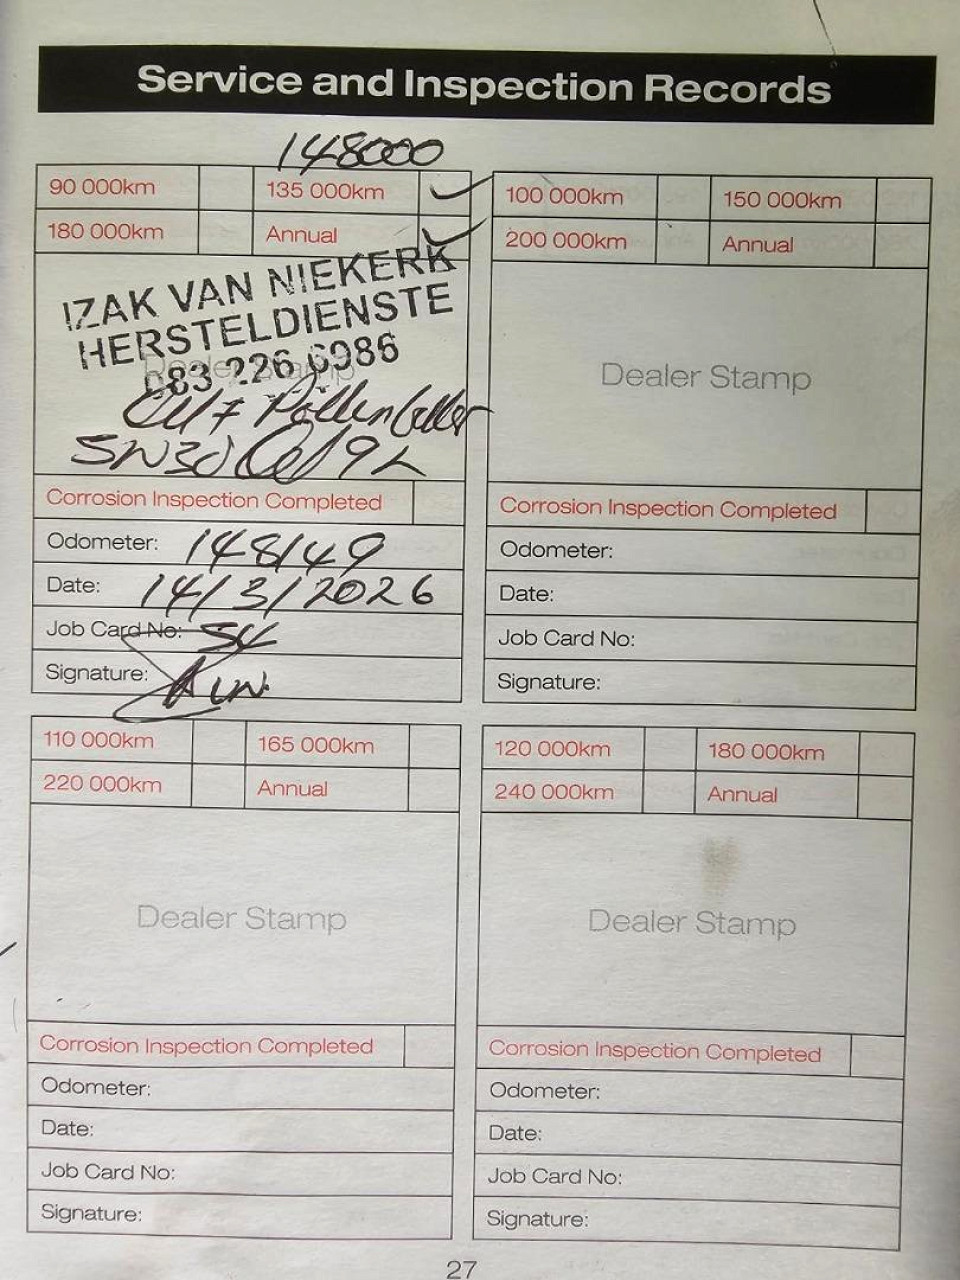 Service and Inspection Records
148000
90 000km 135 000km ✓
180 000km Annual ✓
IZAK VAN NIEKERK
HERSTELDIENSTE
083 226 6986
Dealer Stamp
Pollenfilter
5W30 9L
Corrosion Inspection Completed
Odometer: 148149
Date: 14/3/2026
Job Card No:
Signature:
100 000km 150 000km
200 000km Annual
Dealer Stamp
Corrosion Inspection Completed
Odometer:
Date:
Job Card No:
Signature:
110 000km 165 000km
220 000km Annual
Dealer Stamp
Corrosion Inspection Completed
Odometer:
Date:
Job Card No:
Signature:
120 000km 180 000km
240 000km Annual
Dealer Stamp
Corrosion Inspection Completed
Odometer:
Date:
Job Card No:
Signature:
27